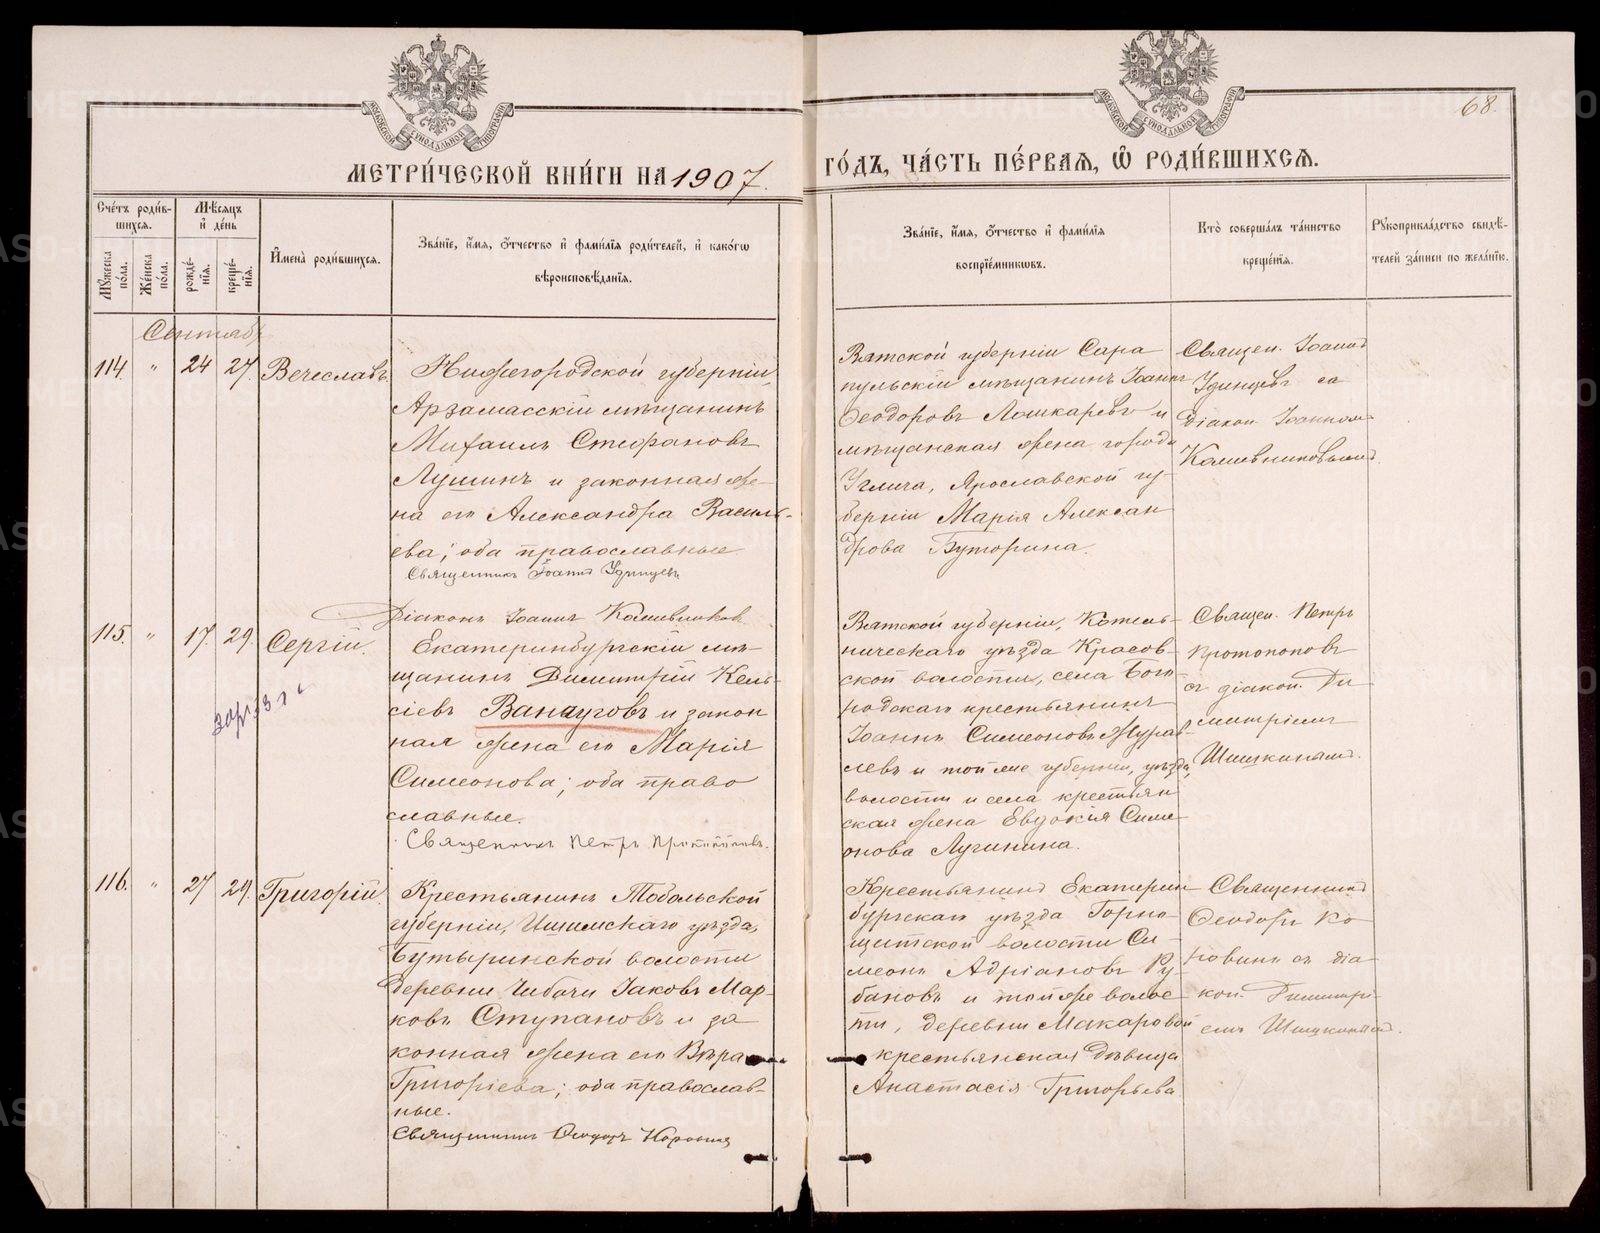 68.
МЕТРИ́ЧЕСКОЙ КНИ́ГИ НА 1907 ГО́ДЪ, ЧА́СТЬ ПЕ́РВАѦ, Ѡ҆ РОДИ́ВШИХСѦ.
Сче́тъ роди́вшихсѧ.
Мꙋ́жеска по́ла.
Же́нска по́ла.
Мѣ́сѧцъ и҆ де́нь
рожде́нїѧ.
креще́нїѧ.
И҆мена̀ роди́вшихсѧ.
Зва́нїе, и҆́мѧ, ѻ҆́тчество и҆ фами́лїѧ роди́телей, и҆ како́гѡ
вѣроисповѣ́данїѧ.
Зва́нїе, и҆́мѧ, ѻ҆́тчество и҆ фами́лїѧ
воспрїе́мникѡвъ.
Кто̀ соверша́лъ та́инство
креще́нїѧ.
Рꙋкоприкла́дство свидѣ́-
телей за́писи по жела́нїю.
Сентябр
114. " 24 27. Вечеславъ
Нижегородской губерніи,
Арзамасскій мѣщанинъ
Михаилъ Стефановъ
Лушинъ и законная же-
на его Александра Василь-
ева; оба православные
Священникъ Іоаннъ Удинцевъ
Діаконъ Іоаннъ Кашевников
Вятской губерніи Сара
пульскій мѣщанинъ Іоаннъ
Ѳеодоровъ Лошкаревъ и
мѣщанская жена города
Углича, Ярославской гу-
берніи Марія Алексан
дрова Буторина.
Священ. Іоаннъ
Удинцевъ съ
діакон. Іоанномъ
Кашевниковымъ.
115. " 17. 29 Сергій.
Екатеринбургскій мѣ-
щанинъ Димитрій Кель-
сіевъ Ванауговъ и закон
ная жена его Марія
Симеонова; оба право
славные.
Священникъ Петръ Протопоповъ.
Вятской губерніи, Котель-
ническаго уѣзда Красов-
ской волости, села Бого
родскаго крестьянинъ
Іоаннъ Симеоновъ Журав-
левъ и той же губерніи, уѣзда,
волости и села крестьян
ская жена Евдокія Симе-
онова Лучинина.
Священ. Петръ
Протопоповъ
съ діакон. Ди
митріемъ
Шишкинымъ.
116. " 27 29. Григорій.
Крестьянинъ Тобольской
губерніи, Ишимскаго уѣзда,
Бутыринской волости
деревни Чибачи Іаковъ Мар-
ковъ Ступановъ и за
конная жена его Вѣра
Григоріева; оба православ-
ные.
Священникъ Ѳеодоръ Коровинъ
Крестьянинъ Екатерин
бургскаго уѣзда Горно-
щитской волости Си-
меонъ Адріановъ Ру-
бановъ и той же волос-
ти, деревни Макаровой
крестьянская дѣвица
Анастасія Григорьева
Священникъ
Ѳеодоръ Ко
ровинъ съ діа-
кон. Димитрі-
емъ Шишкинымъ.